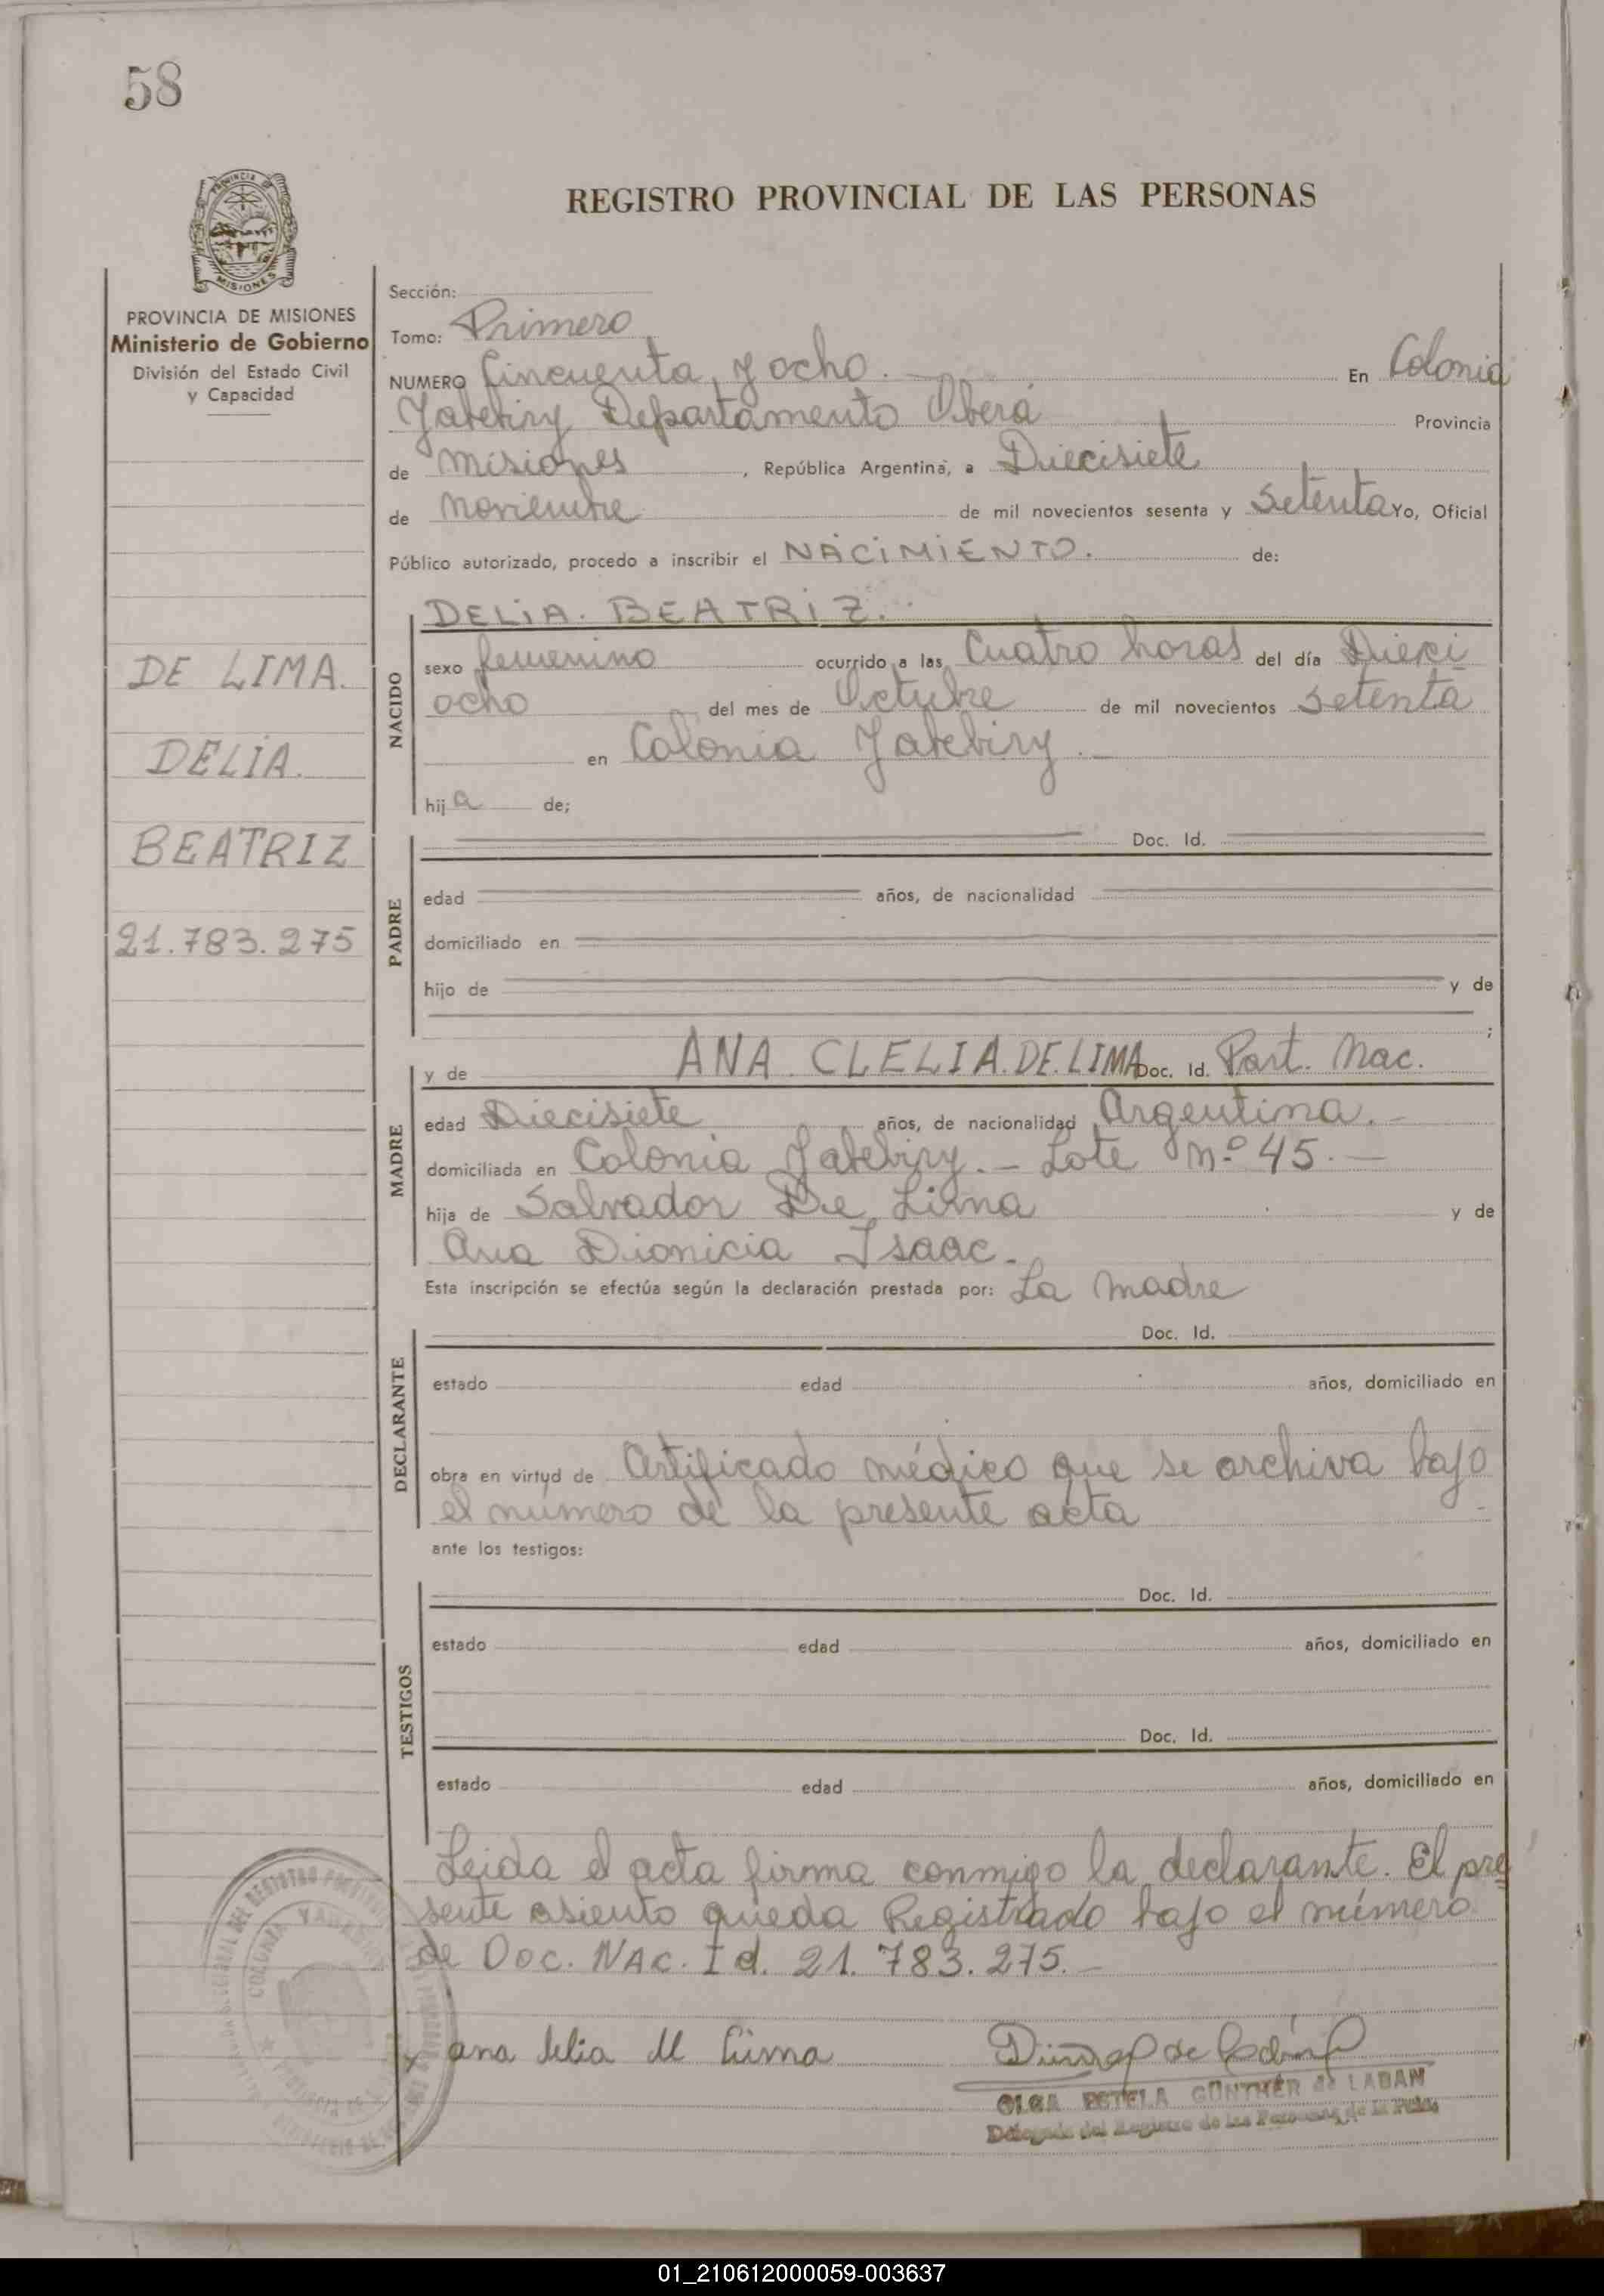 58
REGISTRO PROVINCIAL DE LAS PERSONAS
PROVINCIA DE MISIONES
Ministerio de Gobierno
División del Estado Civil
y Capacidad
DE LIMA.
DELIA.
BEATRIZ
21.783.275
Sección:
Tomo: Primero
NUMERO Cincuenta y ocho. En Colonia
Yabebiry Departamento Oberá Provincia
de Misiones, República Argentina, a Diecisiete
de Noviembre de mil novecientos sesenta y Setenta Yo, Oficial
Público autorizado, procedo a inscribir el NACIMIENTO. de:
NACIDO
DELIA. BEATRIZ.
sexo femenino ocurrido a las Cuatro horas del día Dieci
ocho del mes de Octubre de mil novecientos Setenta
en Colonia Yabebiry.
hija de;
PADRE
Doc. Id.
edad años, de nacionalidad
domiciliado en
hijo de y de
;
MADRE
y de ANA CLELIA. DE. LIMA Doc. Id. Part. Nac.
edad Diecisiete años, de nacionalidad Argentina.-
domiciliada en Colonia Yabebiry.- Lote Nº 45.-
hija de Salvador De Lima y de
Ana Dionicia Isaac.-
Esta inscripción se efectúa según la declaración prestada por: La madre
DECLARANTE
Doc. Id.
estado edad años, domiciliado en
obra en virtud de Certificado médico que se archiva bajo
el número de la presente acta
ante los testigos:
TESTIGOS
Doc. Id.
estado edad años, domiciliado en
Doc. Id.
estado edad años, domiciliado en
Leida el acta firma conmigo la declarante. El pre
sente asiento queda Registrado bajo el número
de Doc. NAC. Id. 21.783.275.-
x ana lelia de Lima
OLGA ESTELA GÜNTHER de LABAN
Delegada del Registro de las Personas de la Pcia.
DEL REGISTRO
COLONIA
01_210612000059-003637